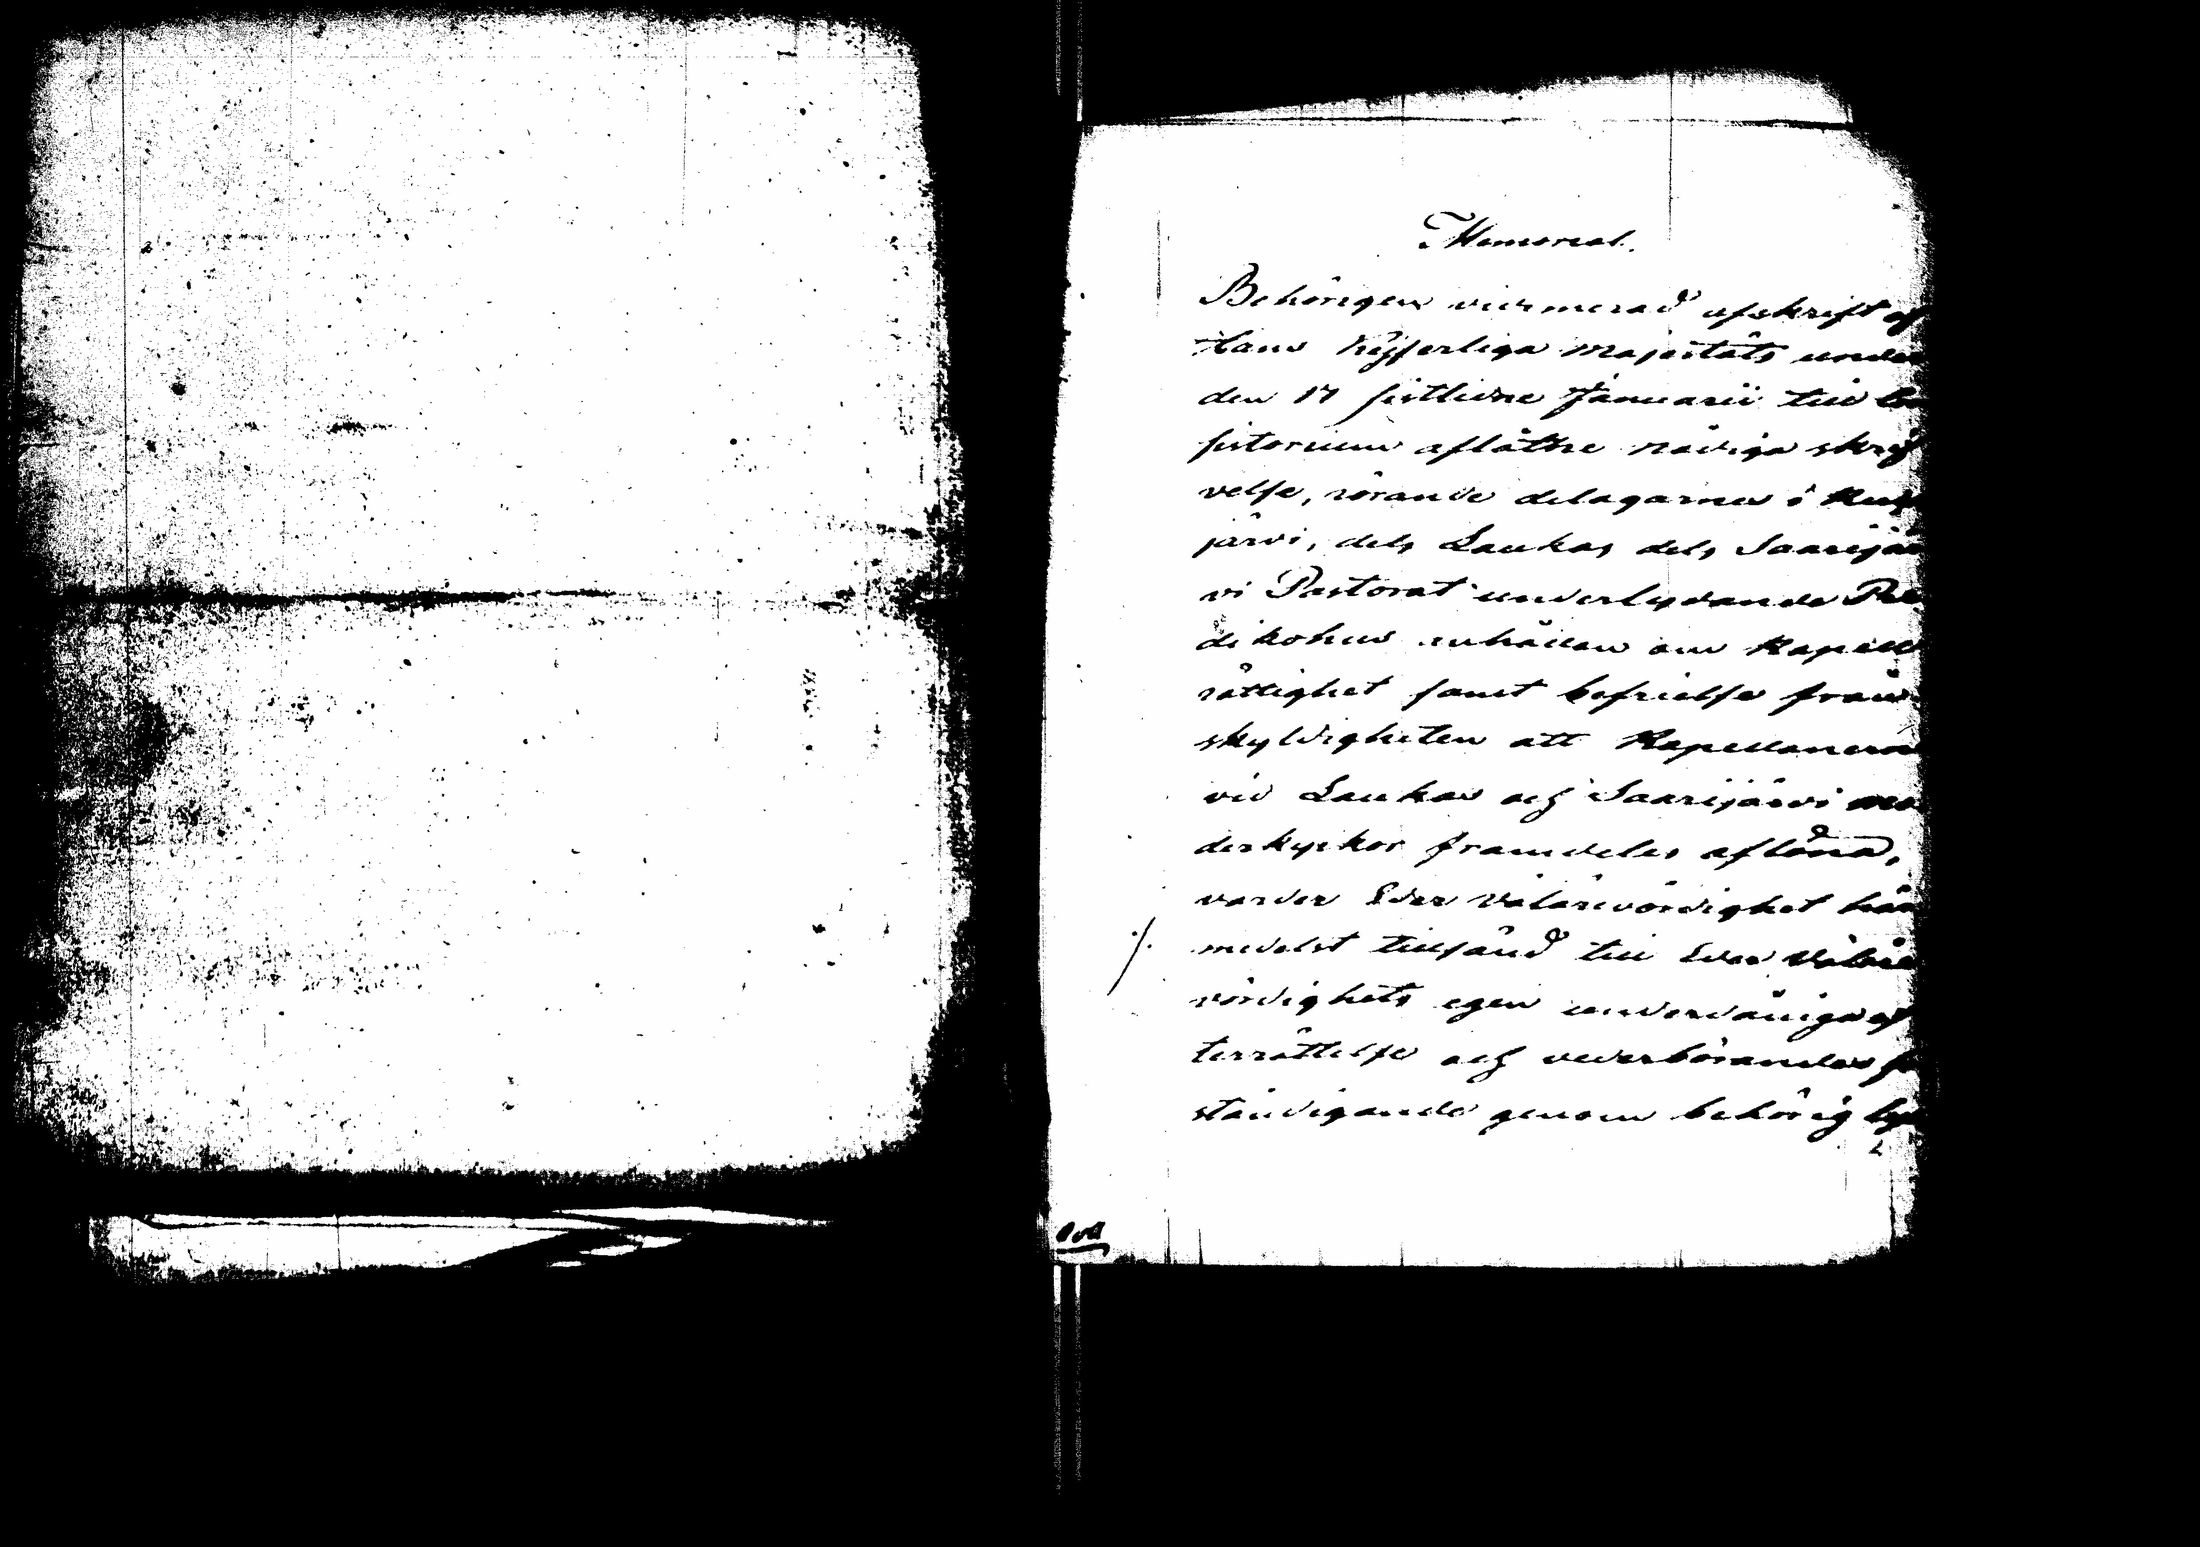 Memorial.
Behörigen vidimerad afskrift af
Hans Kejserliga Majestäts under
den 17 sistlidne Januarii till Con
sistorium aflåtne nådiga skrif
velse, rörande delagarne i
järvi, dels Laukas dels Saarijär
vi Pastorat underlydande Pre
dikohus anhållan om Kapell
rättighet samt befrielse från
skyldigheten att Kapellanerne
vid Laukas och Saarijärvi mo
derkyrkor framdeles aflöna,
varder Eder Välärevördighet här
medelst tillsänd till Eder Väläre
vördighets egen underdåniga ef
terrättelse och vederbörandes för
ständigande genom behörig